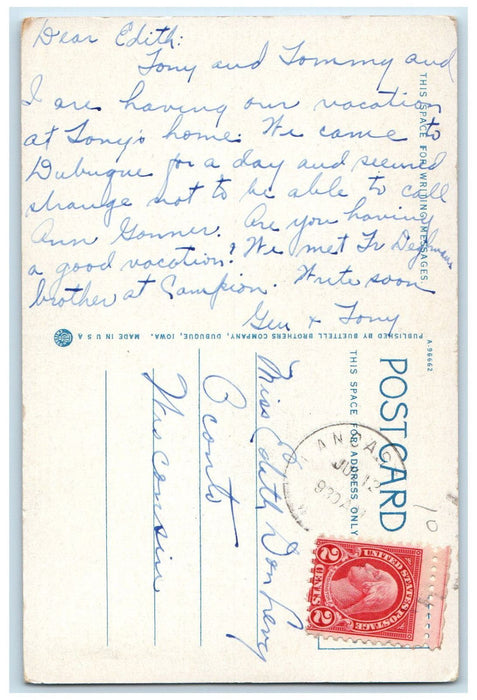 Dear Edith:
Tony and Tommy and
I are having our vacation
at Tony's home. We came to
Dubuque for a day and seemed
strange not to be able to call
Ann Gonner. Are you having
a good vacation? We met Fr
brother at Campion. Write soon
Gen + Tony
THIS SPACE FOR WRITING MESSAGES
PUBLISHED BY BUETTELL BROTHERS COMPANY, DUBUQUE, IOWA. MADE IN U S A
A-96662
POST CARD
THIS SPACE FOR ADDRESS ONLY
LANSING
12
900AM
10
UNITED STATES POSTAGE
2 CENTS 2
Miss Edith Donlevy
Oconto
Wisconsin